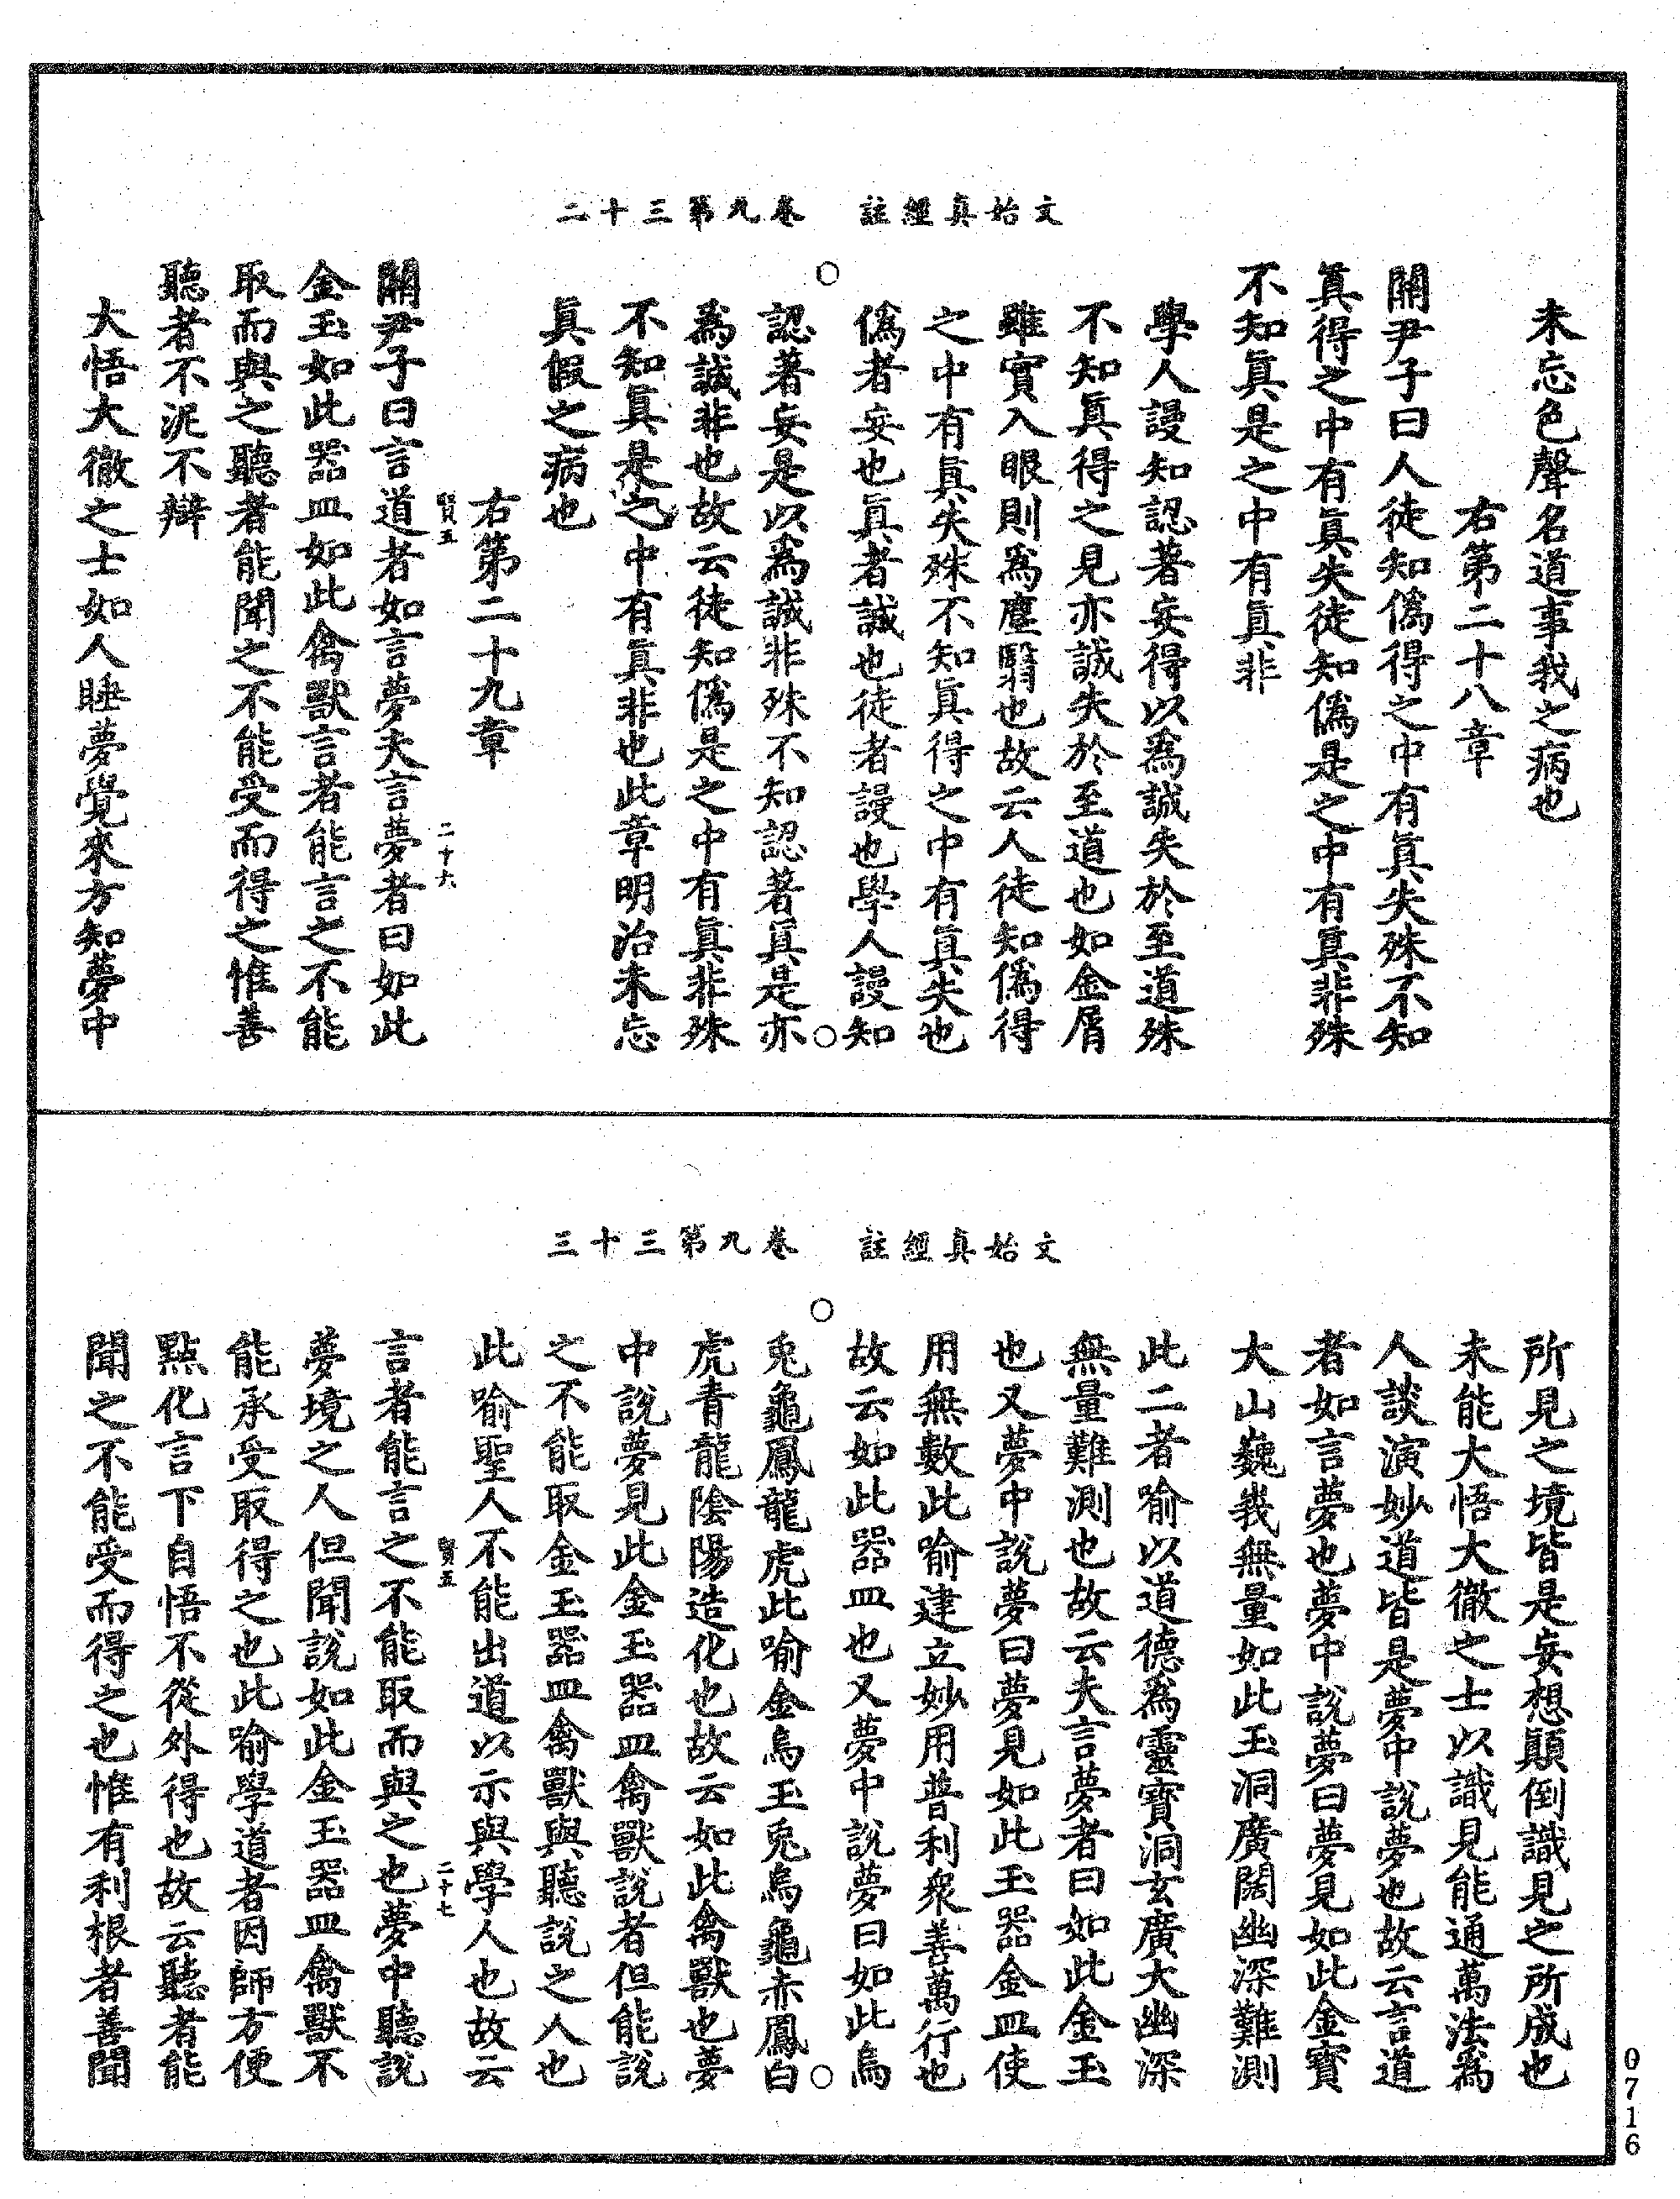 文始真經註　卷九第三十二
未忘色聲名道事我之病也
右第二十八章
關尹子曰人徒知偽得之中有真失殊不知
真得之中有真失徒知偽是之中有真非殊
不知真是之中有真非
學人謾知認著妄得以為誠失於至道殊
不知真得之見亦誠失於至道也如金屑
雖實入眼則為塵翳也故云人徒知偽得
之中有真失殊不知真得之中有真失也
偽者妄也真者誠也徒者謾也學人謾知
認著妄是以為誠非殊不知認著真是亦
為誠非也故云徒知偽是之中有真非殊
不知真是之中有真非也此章明治未忘
真假之病也
右第二十九章
賢五　二十六
關尹子曰言道者如言夢夫言夢者曰如此
金玉如此器皿如此禽獸言者能言之不能
取而與之聽者能聞之不能受而得之惟善
聽者不泥不辯
大悟大徹之士如人睡夢覺來方知夢中
文始真經註　卷九第三十三
所見之境皆是妄想顛倒識見之所成也
未能大悟大徹之士以識見能通萬法為
人談演妙道皆是夢中說夢也故云言道
者如言夢也夢中說夢曰夢見如此金寶
大山巍峩無量如此玉洞廣闊幽深難測
此二者喻以道德為靈寶洞玄廣大幽深
無量難測也故云夫言夢者曰如此金玉
也又夢中說夢曰夢見如此玉器金皿使
用無數此喻建立妙用普利眾善萬行也
故云如此器皿也又夢中說夢曰如此烏
兎龜鳳龍虎此喻金烏玉兎烏龜赤鳳白
虎青龍陰陽造化也故云如此禽獸也夢
中說夢見此金玉器皿禽獸說者但能說
之不能取金玉器皿禽獸與聽說之人也
此喻聖人不能出道以示與學人也故云
賢五　二十七
言者能言之不能取而與之也夢中聽說
夢境之人但聞說如此金玉器皿禽獸不
能承受取得之也此喻學道者因師方便
點化言下自悟不從外得也故云聽者能
聞之不能受而得之也惟有利根者善聞
0716